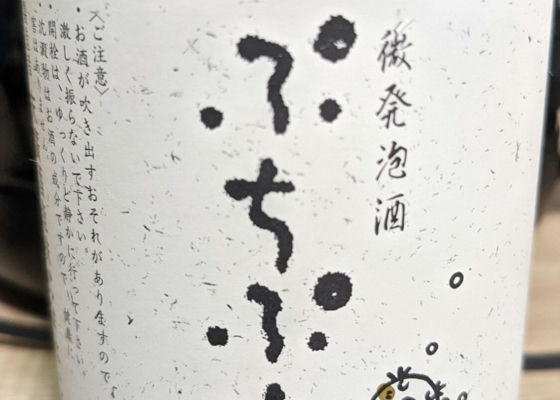 微発泡酒
ぷちぷ
〈ご注意〉
・お酒が吹き出すおそれがありますので、
激しく振らないで下さい。
・開栓は、ゆっくりと静かに行って下さい。
・沈澱物はお酒の成分ですので、